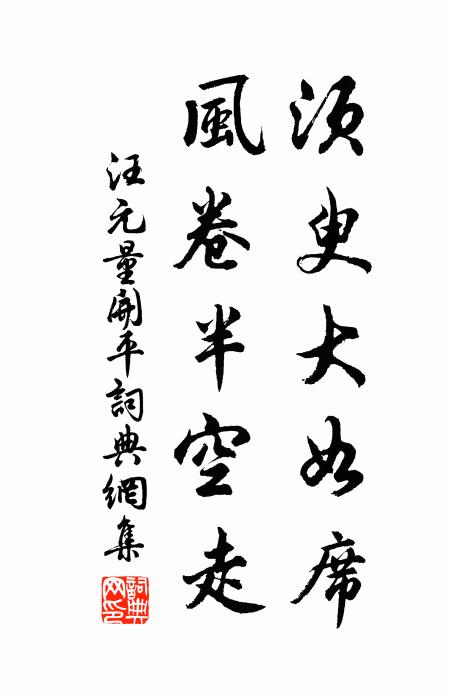 須臾大如席
風卷半空走
汪元量開平詞典網集
詞典
網印